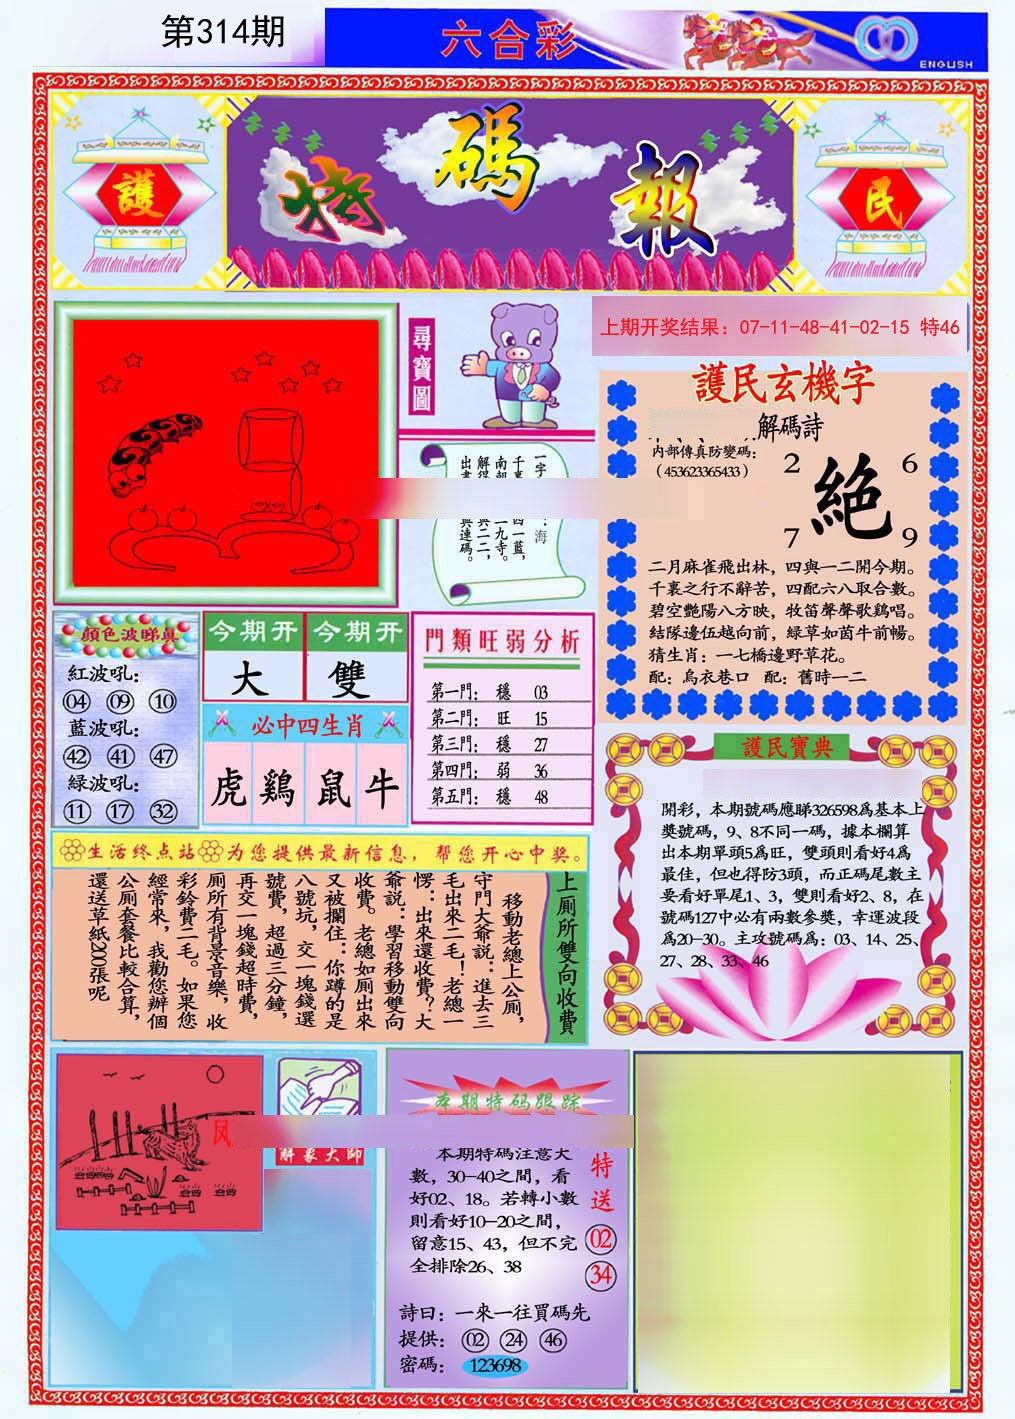 第314期
六合彩
ENGLISH
護
特碼報
民
尋寶圖
上期开奖结果：07-11-48-41-02-15 特46
護民玄機字
解碼詩
内部傳真防變碼：
（453623365433）
2 6
絕
7 9
二月麻雀飛出林，四與一二開今期。
千裏之行不辭苦，四配六八取合數。
碧空艷陽八方映，牧笛聲聲歌鷄唱。
結隊邊伍越向前，綠草如茵牛前暢。
猜生肖：一七橋邊野草花。
配：烏衣巷口 配：舊時一二
一字
海
千裏
四一藍，
南朝
一九寺。
解得
與二二，
出書
與連碼。
顏色波睇真
紅波吼：
04 09 10
藍波吼：
42 41 47
綠波吼：
11 17 32
今期開 今期開
大 雙
必中四生肖
虎 鷄 鼠 牛
門類旺弱分析
第一門： 穩 03
第二門： 旺 15
第三門： 穩 27
第四門： 弱 36
第五門： 穩 48
護民寶典
開彩，本期號碼應睇326598爲基本上
獎號碼，9、8不同一碼，據本欄算
出本期單頭5爲旺，雙頭則看好4爲
最佳，但也得防3頭，而正碼尾數主
要看好單尾1、3，雙則看好2、8，在
號碼127中必有兩數參獎，幸運波段
爲20-30。主攻號碼爲：03、14、25、
27、28、33、46
生活终点站 为您提供最新信息，帮您开心中奖。
上厠所雙向收費
移動老總上公厠，
守門大爺説：進去三
毛出來二毛！老總一
愣：出來還收費？大
爺説：學習移動雙向
收費。老總如厠出來
又被攔住：你蹲的是
八號坑，交一塊錢選
號費，超過三分鐘，
再交一塊錢超時費，
厠所有背景音樂，收
彩鈴費二毛。如果您
經常來，我勸您辦個
公厠套餐比較合算，
還送草紙2000張呢
凤
解象大師
本期特码跟踪
本期特码注意大
數，30-40之間，看
好02、18。若轉小數
則看好10-20之間，
留意15、43，但不完
全排除26、38
特送
02
34
詩曰：一來一往買碼先
提供： 02 24 46
密碼： 123698